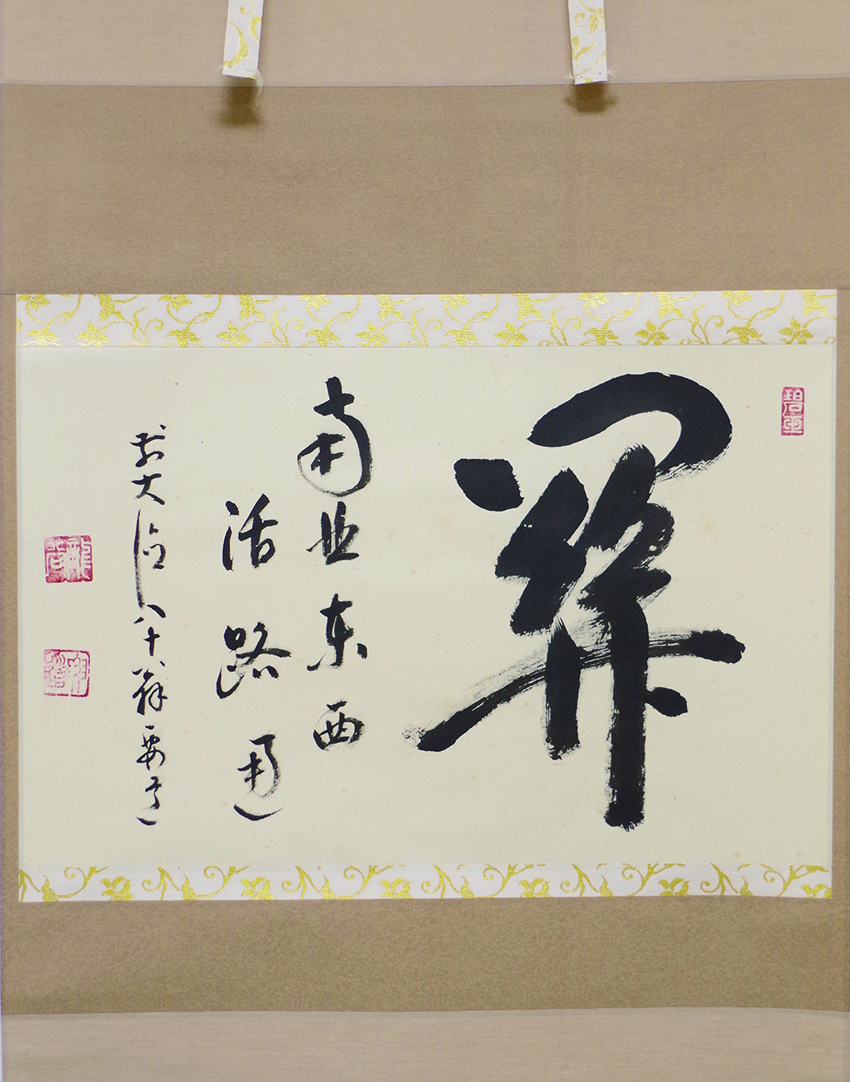 關
南北東西
活路通
前大徳八十翁